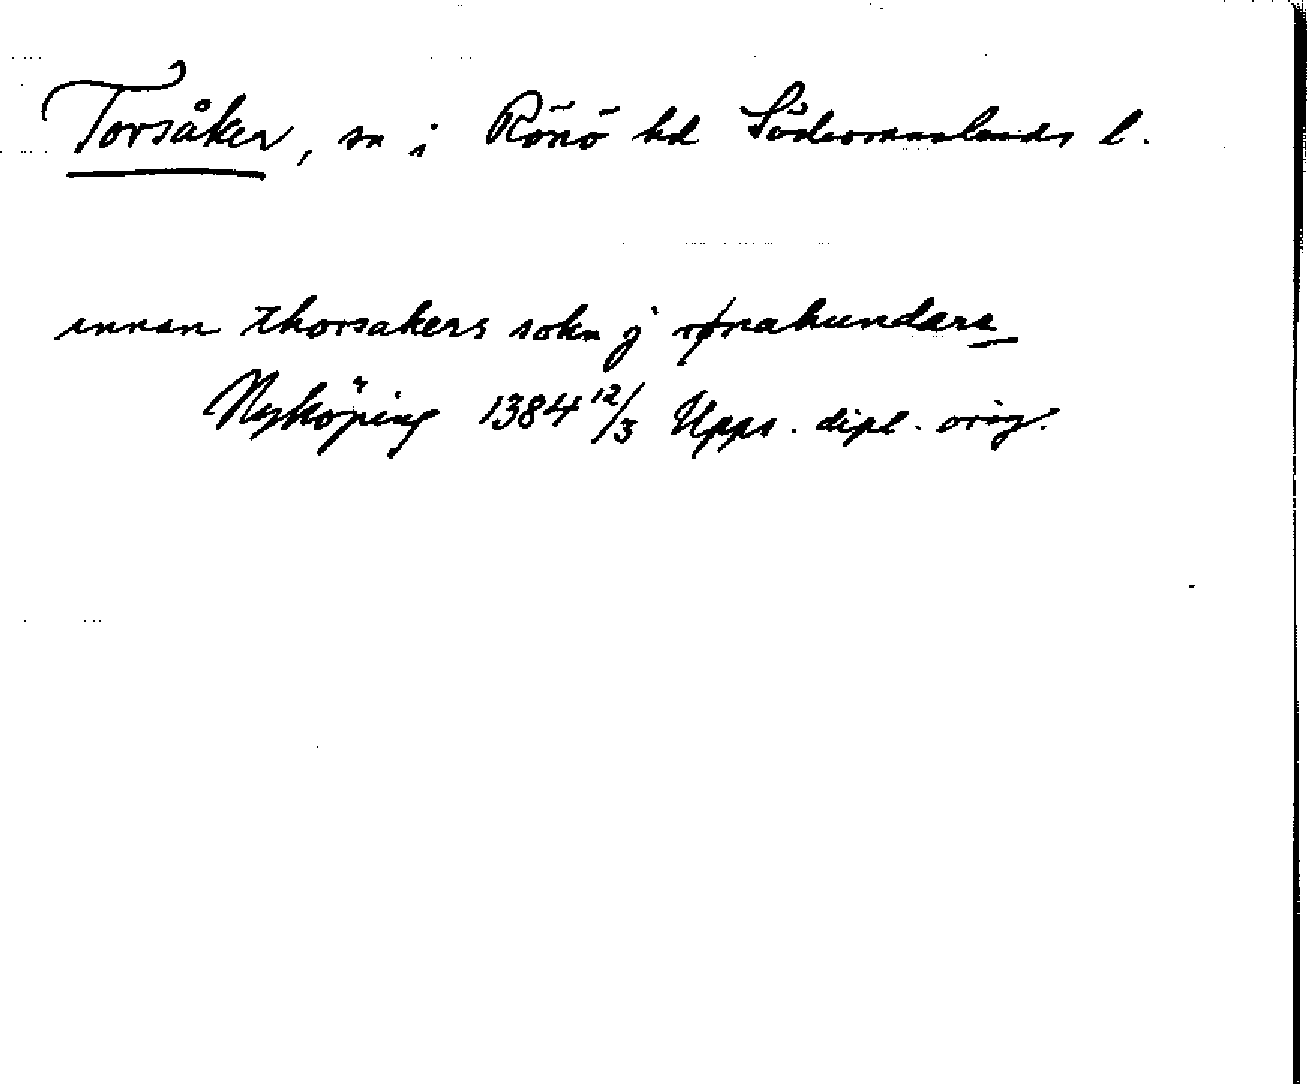 Torsåker, sn i Rönö hd Södermanlands l.
innan thorsakers sokn j rønahundare
Nyköping 1384 12/3 Upps. dipl. orig.